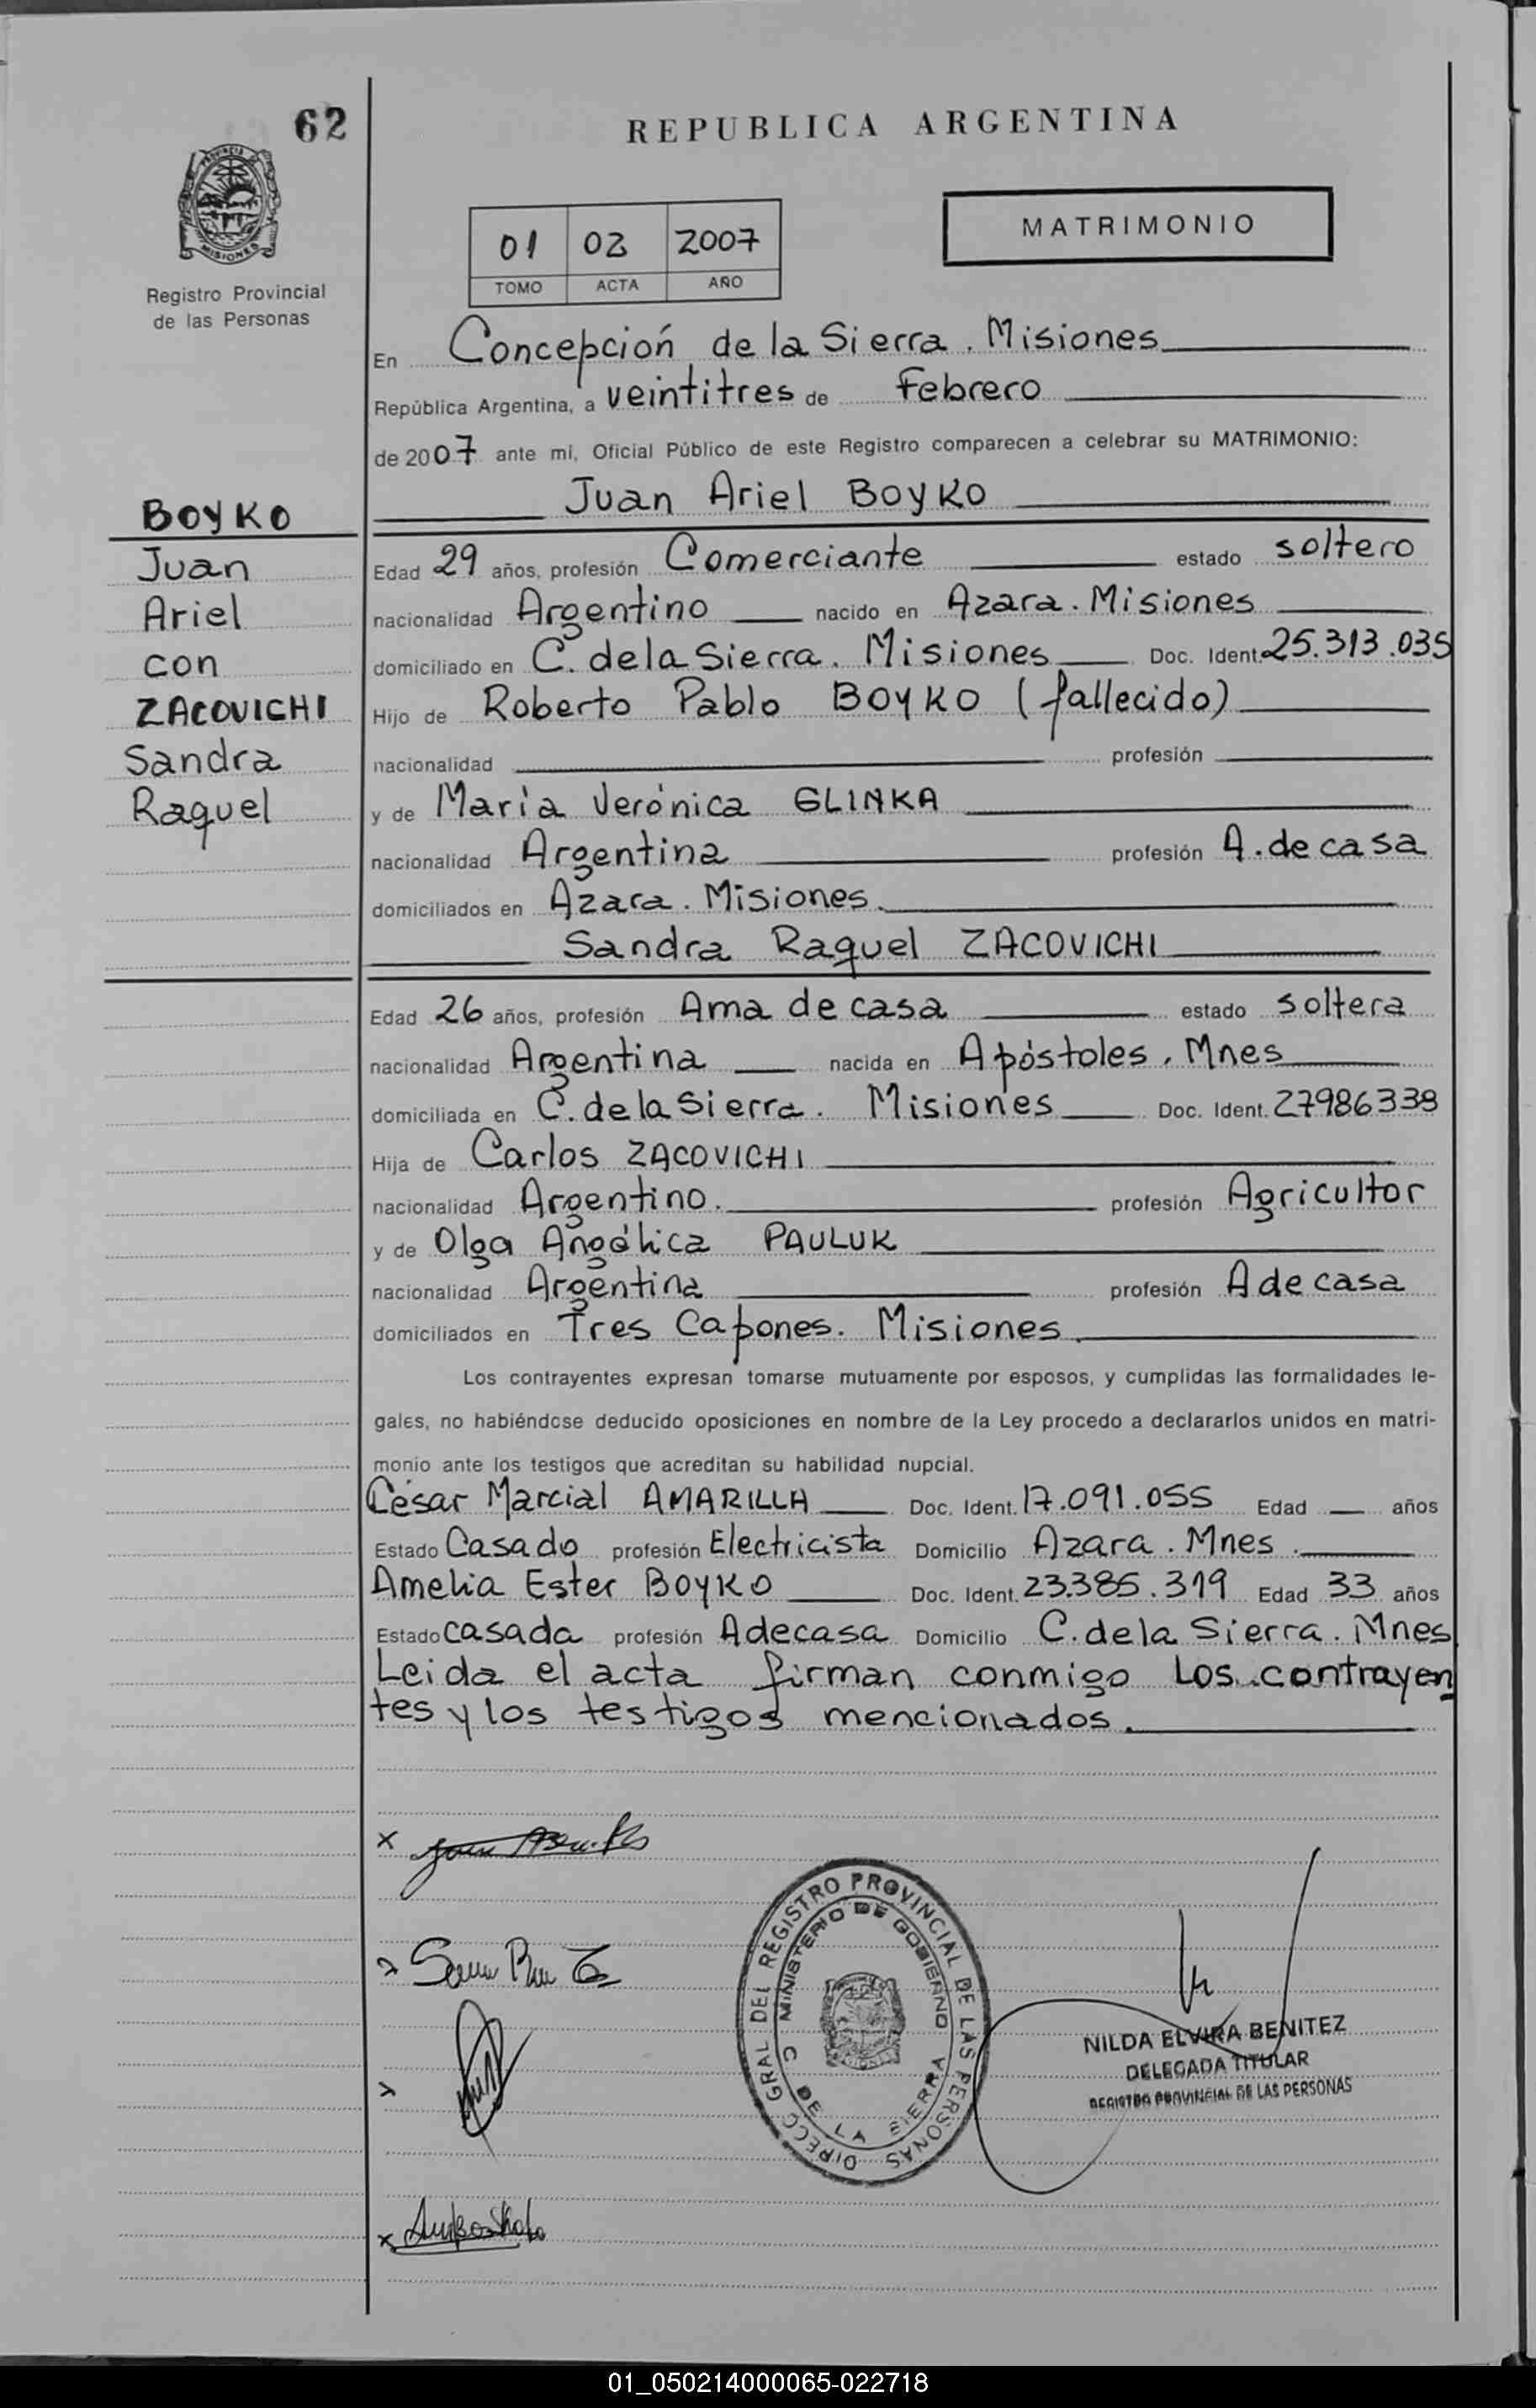 62
REPUBLICA ARGENTINA
MISIONES
Registro Provincial
de las Personas
01 02 2007
TOMO ACTA AÑO
MATRIMONIO
En Concepción de la Sierra. Misiones
República Argentina, a veintitres de Febrero
de 2007 ante mí, Oficial Público de este Registro comparecen a celebrar su MATRIMONIO:
BOYKO
Juan
Ariel
con
ZACOVICHI
Sandra
Raquel
Juan Ariel BOYKO
Edad 29 años, profesión Comerciante estado soltero
nacionalidad Argentino nacido en Azara. Misiones
domiciliado en C. de la Sierra. Misiones Doc. Ident. 25.313.035
Hijo de Roberto Pablo BOYKO (fallecido)
nacionalidad profesión
y de María Verónica GLINKA
nacionalidad Argentina profesión A. de casa
domiciliados en Azara. Misiones.
Sandra Raquel ZACOVICHI
Edad 26 años, profesión Ama de casa estado soltera
nacionalidad Argentina nacida en Apóstoles. Mnes
domiciliada en C. de la Sierra. Misiones Doc. Ident. 27986338
Hija de Carlos ZACOVICHI
nacionalidad Argentino. profesión Agricultor
y de Olga Angélica PAULUK
nacionalidad Argentina profesión A de casa
domiciliados en Tres Capones. Misiones.
Los contrayentes expresan tomarse mutuamente por esposos, y cumplidas las formalidades le-
gales, no habiéndose deducido oposiciones en nombre de la Ley procedo a declararlos unidos en matri-
monio ante los testigos que acreditan su habilidad nupcial.
César Marcial AMARILLA Doc. Ident. 17.091.055 Edad años
Estado Casado profesión Electricista Domicilio Azara. Mnes.
Amelia Ester BOYKO Doc. Ident. 23.385.319 Edad 33 años
Estado casada profesión A de casa Domicilio C. de la Sierra. Mnes
Leida el acta firman conmigo los contrayen
tes y los testigos mencionados.
DIRECC GRAL DEL REGISTRO PROVINCIAL DE LAS PERSONAS
MINISTERIO DE GOBIERNO
C DE LA SIERRA
NILDA ELVIRA BENITEZ
DELEGADA TITULAR
REGISTRO PROVINCIAL DE LAS PERSONAS
01_050214000065-022718